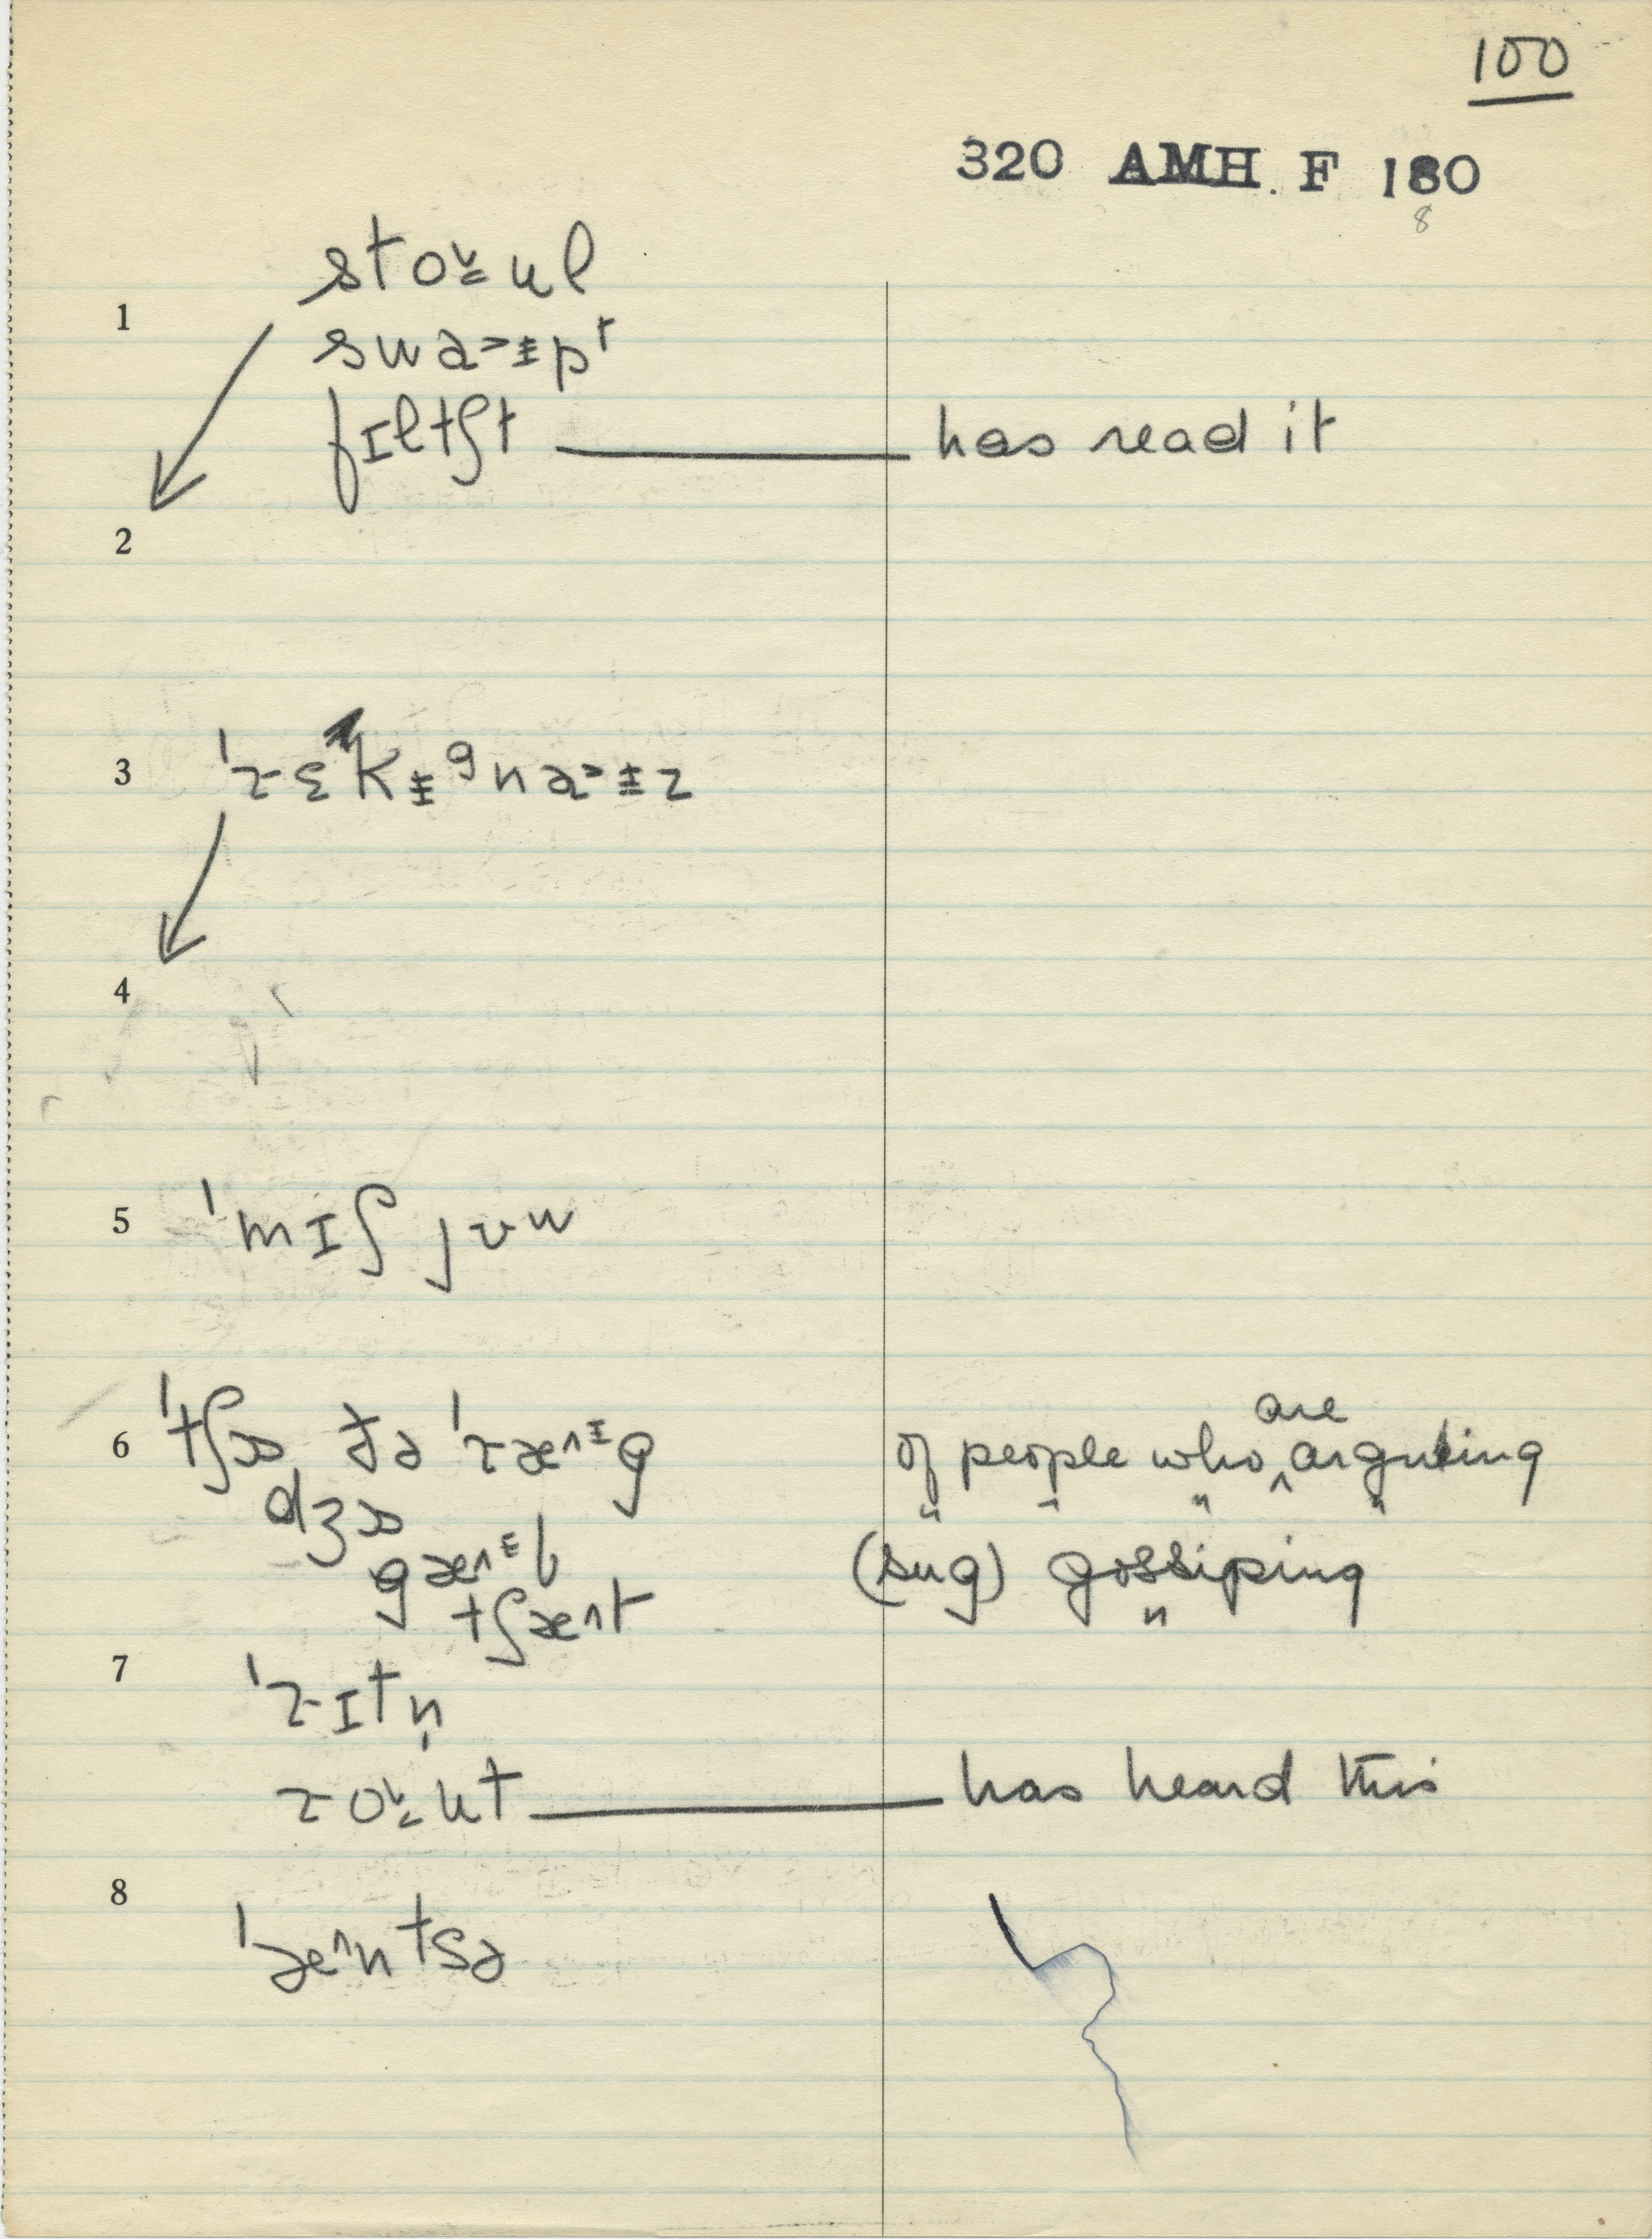 100
320 AMH. F 180
8
stoꞈul
1
swa˃ɨpʳ
fɪltʃt — has read it
2
3 ˈrɛkɨᵍna˃ɨz
4
5 ˈmɪʃ jʊw
are
6 ˈtʃɒ də ˈræ^ɨg of people who ^ argueing
dʒɒ
gæ^ɨb (sug) gossiping
tʃæ^t
7 ˈrɪtn̩
roꞈut — has heard this
8 ˈæ^ntsə